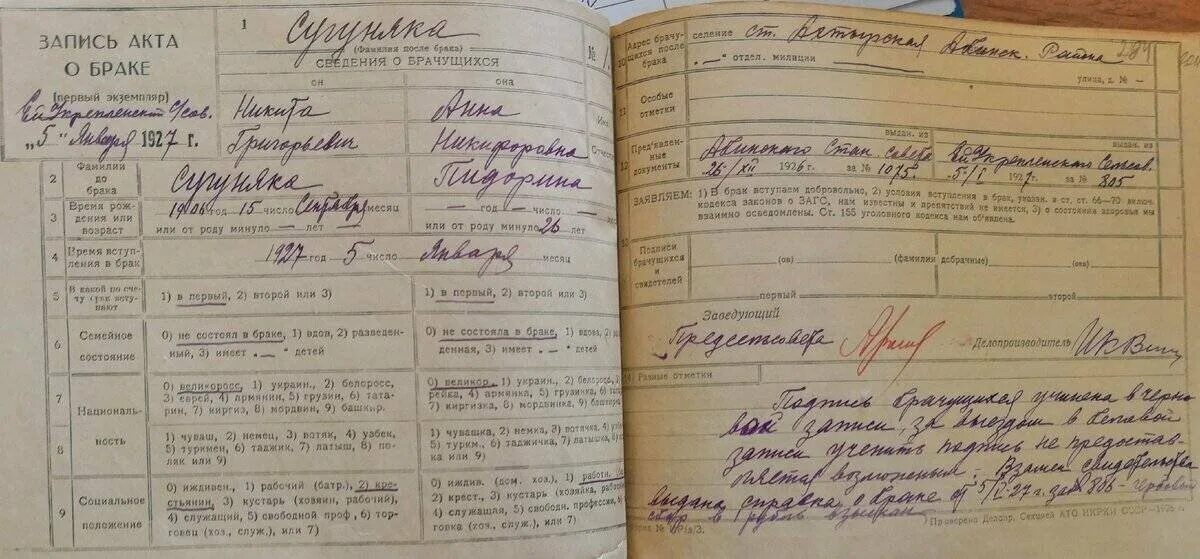 ЗАПИСЬ АКТА
О БРАКЕ
(первый экземпляр)
Укрепленск с/сов.
"5" Января 1927 г.
1
Сугуняка
(Фамилия после брака)
СВЕДЕНИЯ О БРАЧУЩИХСЯ
№
он она
Никита Анна
Григорьевич Никифоровна
2 Фамилии до брака Сугуняка Пидорина
3 Время рождения или возраст
1906 год 15 число Сентября месяц — год — число — месяц
или от роду минуло — лет или от роду минуло 26 лет
4 Время вступления в брак 1927 год 5 число Января месяц
5 В какой по счету брак вступают
1) в первый, 2) второй или 3) 1) в первый, 2) второй или 3)
6 Семейное состояние
0) не состоял в браке, 1) вдов, 2) разведенный, 3) имеет — " детей
0) не состояла в браке, 1) вдова, 2) разведенная, 3) имеет — " детей
7 Националь-
0) великоросс, 1) украин., 2) белоросс, 3) еврей, 4) армянин, 5) грузин, 6) татарин, 7) киргиз, 8) мордвин, 9) башкир.
0) великор., 1) украин., 2) белоросс, 3) еврейка, 4) армянка, 5) грузинка, 6) 7) киргизка, 8) мордвинка, 9) башкирка
8 ность
1) чуваш, 2) немец, 3) вотяк, 4) узбек, 5) туркмен, 6) таджик, 7) латыш, 8) поляк или 9)
1) чувашка, 2) немка, 3) вотячка, 4) 5) туркм., 6) таджичка, 7) латышка, 8) или 9)
9 Социальное положение
0) иждивен, 1) рабочий (батр.), 2) крестьянин, 3) кустарь (хозяин, рабочий), 4) служащий, 5) свободной проф., 6) торговец (хоз., служ.), или 7)
0) иждив. (дом. хоз.), 1) работн. 2) крест., 3) кустарь (хозяйка, рабочий) 4) служащая, 5) свободн. профессии, 6) торговка (хоз. служ.), или 7)
10 Адрес брачущихся после брака
селение ст. Ахтырская Абинск. Района
— " отдел. милиции
улица, д. № —
11 Особые отметки
12 Пред'явленные документы
выдан. из выдан. из
Абинского Стан. Совета Укрепленского Сельсов.
26/XII 1926 г. за № 1075 5/I 1927 г. за № 805
ЗАЯВЛЯЕМ: 1) В брак вступаем добровольно, 2) условия вступления в брак, указан. в ст. ст. 66—70 включ.
кодекса законов о ЗАГС, нам известны и препятствий не имеется, 3) о состоянии здоровья мы
взаимно осведомлены. Ст. 155 уголовного кодекса нам об'явлена.
Подписи брачущихся и свидетелей
(он) (фамилии добрачные) (она)
первый второй
Заведующий
Предсельсовета Делопроизводитель
Разные отметки
Подпись брачущихся учинена в черно-
вой записи, за выездом в беловой
записи учинить подпись не предостав-
ляется возможным. Взамен свидетельства
выдана справка о браке от 5/I-27 г. за № 806
Проверено Делопр. Секцией АТО НКРКИ СССР—1926 г.